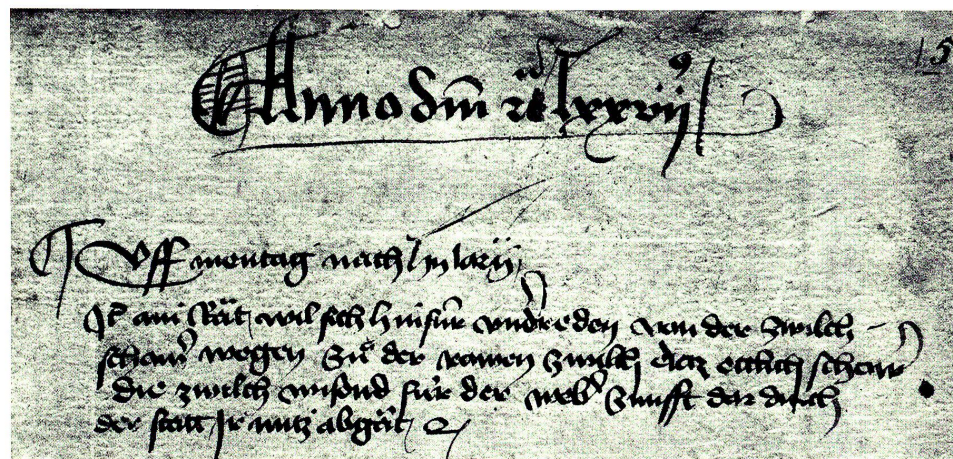 15
Anno dm̄ rc lxxvij
Uff mentag nach hylarij
It ain Rät wil sich hinfür vndreden von der zwilch
schowr wegen der rawen zwilch daz ettlich schowr
die zwilch wisend für der web zunfft dar durch
der statt Ir nutz abgät